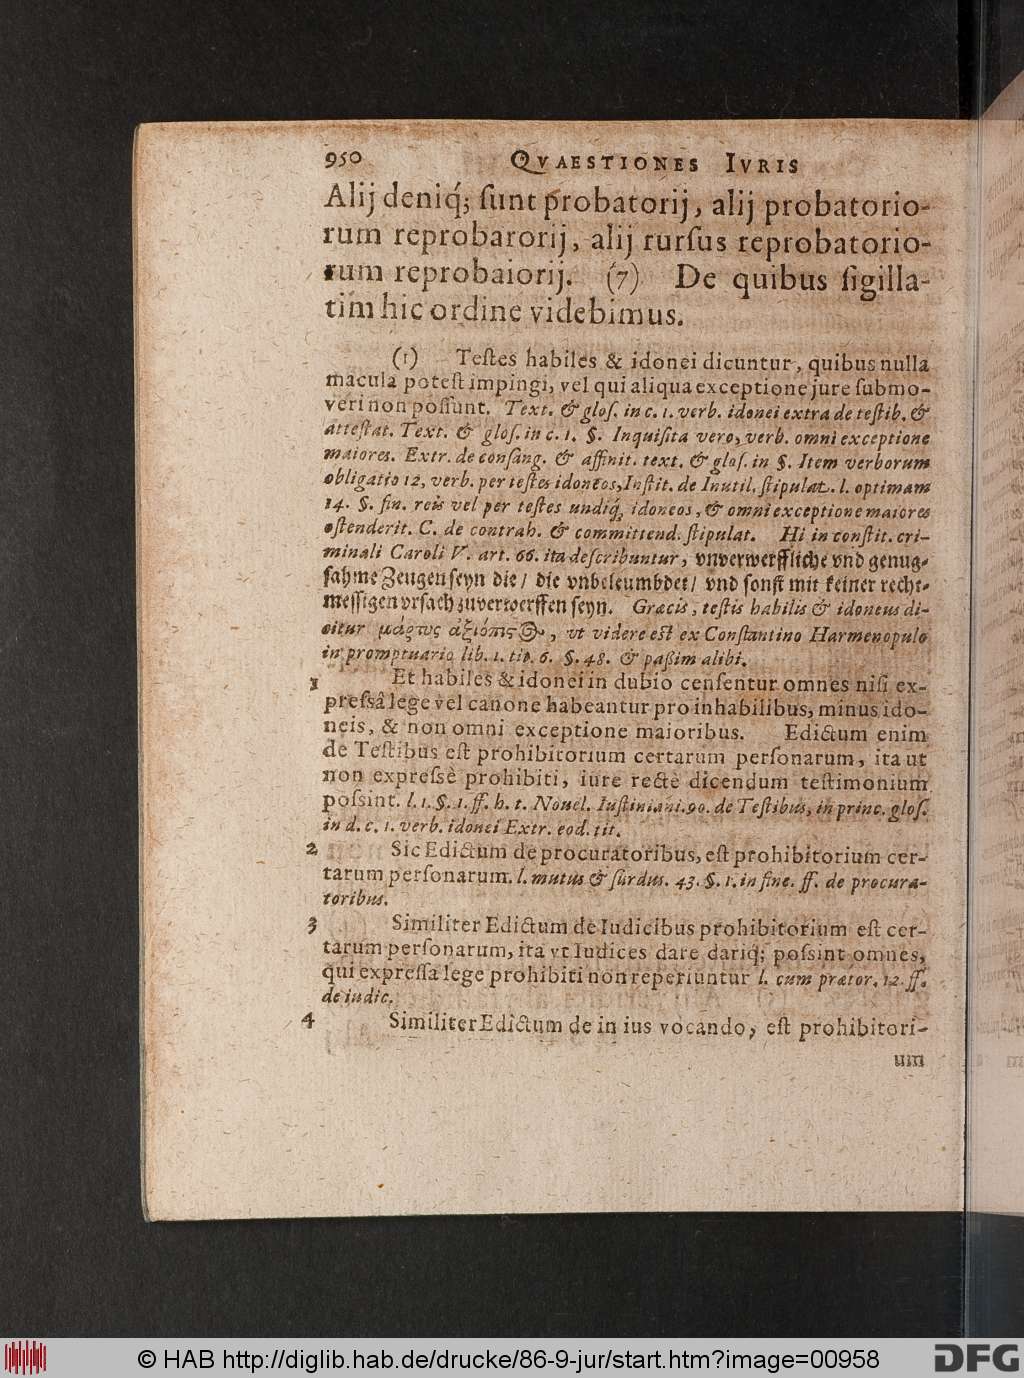 950 QVAESTIONES IVRIS
Alij deniq́; ſunt probatorij, alij probatorio-
rum reprobarorij, alij rurſus reprobatorio-
rum reprobaiorij. (7) De quibus ſigilla-
tim hic ordine videbimus.
(1) Teſtes habiles & idonei dicuntur, quibus nulla
macula poteſt impingi, vel qui aliqua exceptione jure ſubmo-
veri non poſſunt. Text. & gloſ. in c. 1. verb. idonei extra de teſtib. &
atteſtat. Text. & gloſ. in c. 1. §. Inquiſita vero, verb. omni exceptione
maiores. Extr. de conſang. & affinit. text. & gloſ. in §. Item verborum
obligatio 12, verb. per teſtes idoneos, Inſtit. de Inutil. ſtipulat. l. optimam
14. §. fin. reis vel per teſtes undiq́, idoneos, & omni exceptione maiores
oſtenderit. C. de contrah. & committend. ſtipulat. Hi in conſtit. cri-
minali Caroli V. art. 66. ita deſcribuntur, vnverwerffliche vnd genug-
ſahme Zeugen ſeyn die / die vnbeleumbdet / vnd ſonſt mit keiner recht-
meſſigen vrſach zuverwerffen ſeyn. Græcis, teſtis habilis & idoneus di-
citur μάρτυς ἀξιόπιςος, vt videre eſt ex Conſtantino Harmenopulo
in promptuario lib. 1. tit. 6. §. 48. & paßim alibi.
1 Et habiles & idonei in dubio cenſentur omnes niſi ex-
preſsâ lege vel canone habeantur pro inhabilibus, minus ido-
neis, & non omni exceptione maioribus. Edictum enim
de Teſtibus eſt prohibitorium certarum perſonarum, ita ut
non expreſsè prohibiti, iure rectè dicendum teſtimonium
poſsint. l. 1. §. 1. ff. h. t. Novel. Iuſtiniani. 90. de Teſtibus, in princ. gloſ.
in d. c. 1. verb. idonei Extr. eod. tit.
2 Sic Edictum de procuratoribus, eſt prohibitorium cer-
tarum perſonarum. l. mutus & ſurdus. 43. §. 1. in fine. ff. de procura-
toribus.
3 Similiter Edictum de Iudicibus prohibitorium eſt cer-
tarum perſonarum, ita vt Iudices dare dariq́; poſsint omnes,
qui expreſſa lege prohibiti non reperiuntur l. cum prætor. 12. ff.
de iudic.
4 Similiter Edictum de in ius vocando, eſt prohibitori-
um
© HAB http://diglib.hab.de/drucke/86-9-jur/start.htm?image=00958 DFG